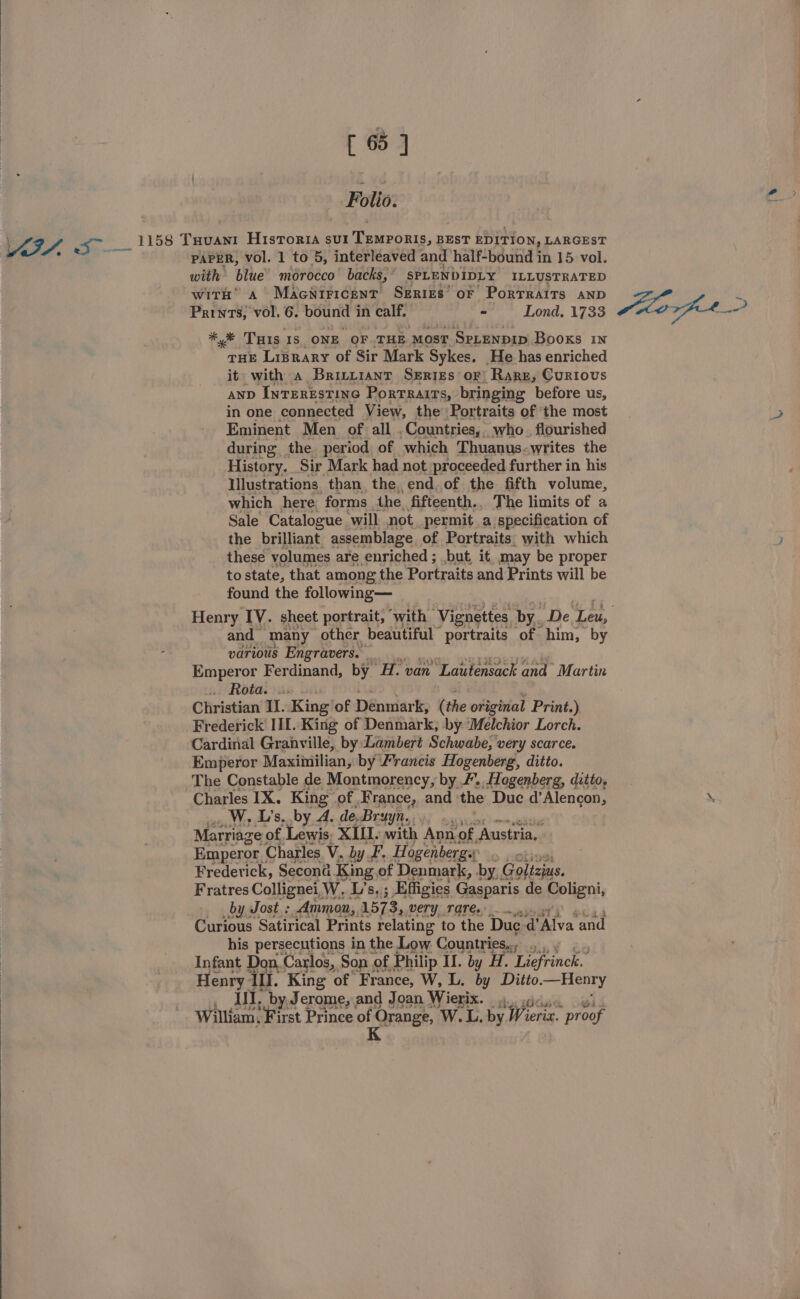 [ 65 ]
Folio.
1158 THUANI HISTORIA SUI TEMPORIS, BEST EDITION, LARGEST
PAPER, vol. 1 to 5, interleaved and half-bound in 15 vol.
with blue morocco backs, SPLENDIDLY ILLUSTRATED
WITH A MAGNIFICENT SERIES OF PORTRAITS AND
PRINTS, vol. 6. bound in calf. - Lond. 1733 Thorpe
*** THIS IS ONE OF THE MOST SPLENDID BOOKS IN
THE LIBRARY of Sir Mark Sykes. He has enriched
it with a BRILLIANT SERIES OF RARE, CURIOUS
AND INTERESTING PORTRAITS, bringing before us,
in one connected View, the Portraits of the most
Eminent Men of all Countries, who flourished
during the period of which Thuanus writes the
History. Sir Mark had not proceeded further in his
Illustrations than the end of the fifth volume,
which here forms the fifteenth. The limits of a
Sale Catalogue will not permit a specification of
the brilliant assemblage of Portraits with which
these volumes are enriched; but it may be proper
to state, that among the Portraits and Prints will be
found the following—
Henry IV. sheet portrait, with Vignettes by De Leu,
and many other beautiful portraits of him, by
various Engravers.
Emperor Ferdinand, by H. van Lautensack and Martin
Rota.
Christian II. King of Denmark, (the original Print.)
Frederick III. King of Denmark, by Melchior Lorch.
Cardinal Granville, by Lambert Schwabe, very scarce.
Emperor Maximilian, by Francis Hogenberg, ditto.
The Constable de Montmorency, by F. Hogenberg, ditto.
Charles IX. King of France, and the Duc d'Alençon,
W. L's. by A. de Bruyn.
Marriage of Lewis XIII. with Ann of Austria.
Emperor Charles V. by F. Hogenberg.
Frederick, Second King of Denmark, by Goltzius.
Fratres Collignei W. L's.; Effigies Gasparis de Coligni,
by Jost : Ammon, 1573, very rare.
Curious Satirical Prints relating to the Duc d'Alva and
his persecutions in the Low Countries.
Infant Don Carlos, Son of Philip II. by H. Liefrinck.
Henry III. King of France, W, L. by Ditto.—Henry
III. by Jerome, and Joan Wierix.
William, First Prince of Orange, W. L. by Wierix. proof
K